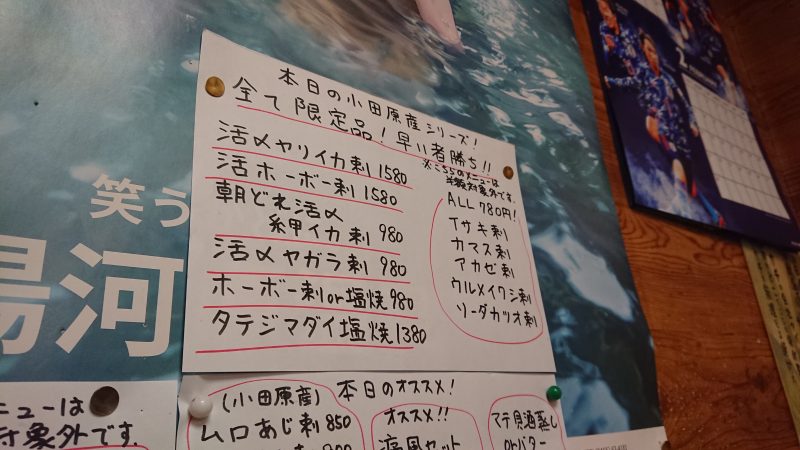 本日の小田原産シリーズ!
全て限定品!早い者勝ち!!
活〆ヤリイカ刺 1580
活ホーボー刺 1580
朝どれ活〆
紋甲イカ刺 980
活〆ヤガラ刺 980
ホーボー刺or塩焼 980
タテジマダイ塩焼 1380
※こちらのメニューは
半額対象外です。
ALL 780円!
イサキ刺
カマス刺
アカゼ刺
ウルメイワシ刺
ソーダガツオ刺
笑う
湯河
ニューは
対象外です。
(小田原産)
本日のオススメ!
ムロあじ刺 850
オススメ!!
痛風セット
マテ貝酒蒸し
orバター